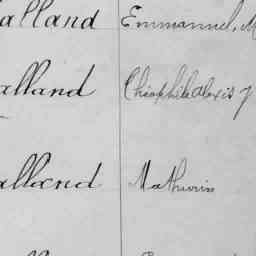 alland Emmanuel, M
alland Théophile Alexis J
alland Mathurin